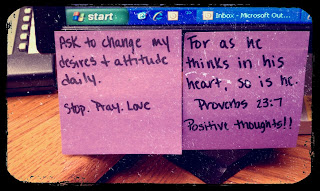 start
Inbox - Microsoft Out...
Ask to change my
desires + attitude
daily.
Stop. Pray. Love
For as he
thinks in his
heart, so is he.
Proverbs 23:7
Positive thoughts!!